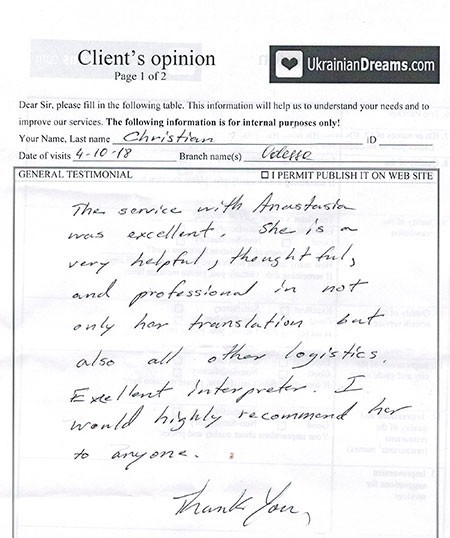 Client's opinion
Page 1 of 2
UkrainianDreams.com
Dear Sir, please fill in the following table. This information will help us to understand your needs and to
improve our services. The following information is for internal purposes only!
Your Name, Last name Christian ID
Date of visits 4-10-18 Branch name(s) Odessa
GENERAL TESTIMONIAL ☐ I PERMIT PUBLISH IT ON WEB SITE
The service with Anastasia
was excellent. She is a
very helpful, thoughtful,
and professional in not
only her translation but
also all other logistics.
Excellent interpreter. I
would highly recommend her
to anyone.
Thank You,